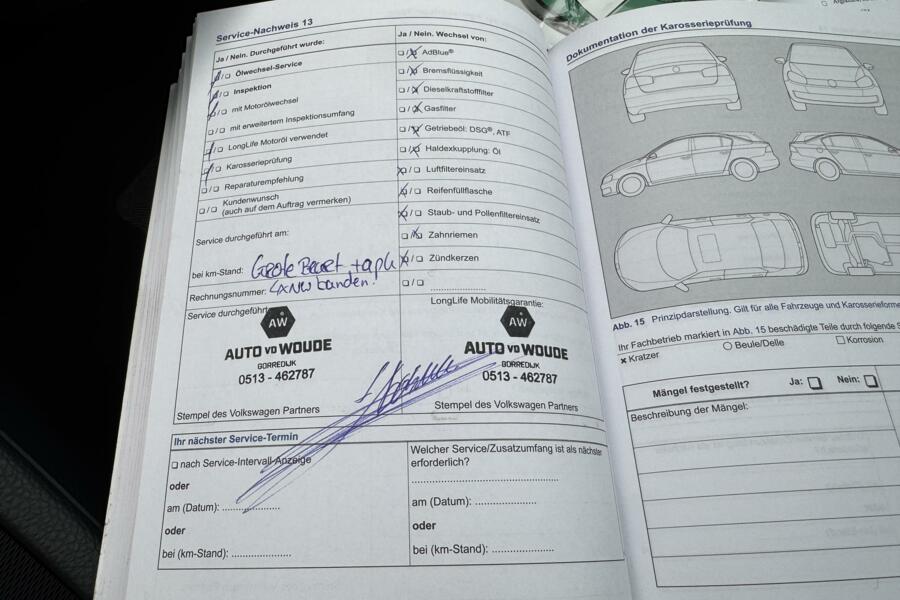 Service-Nachweis 13
Ja / Nein. Durchgeführt wurde:
Ölwechsel-Service
Inspektion
mit Motorölwechsel
mit erweitertem Inspektionsumfang
LongLife Motoröl verwendet
Karosserieprüfung
Reparaturempfehlung
Kundenwunsch
(auch auf dem Auftrag vermerken)
Service durchgeführt am:
bei km-Stand: Grote Beurt + apk
Rechnungsnummer: 4x NW banden!
Service durchgeführt
AW
AUTO VD WOUDE
GORREDIJK
0513 - 462787
Stempel des Volkswagen Partners
Ja / Nein. Wechsel von:
AdBlue®
Bremsflüssigkeit
Dieselkraftstofffilter
Gasfilter
Getriebeöl: DSG®, ATF
Haldexkupplung: Öl
Luftfiltereinsatz
Reifenfüllflasche
Staub- und Pollenfiltereinsatz
Zahnriemen
Zündkerzen
LongLife Mobilitätsgarantie:
AW
AUTO VD WOUDE
GORREDIJK
0513 - 462787
Stempel des Volkswagen Partners
Ihr nächster Service-Termin
nach Service-Intervall-Anzeige
oder
am (Datum): ....................
oder
bei (km-Stand): ....................
Welcher Service/Zusatzumfang ist als nächster
erforderlich?
am (Datum): ....................
oder
bei (km-Stand): ....................
Dokumentation der Karosserieprüfung
Abb. 15 Prinzipdarstellung. Gilt für alle Fahrzeuge und
Ihr Fachbetrieb markiert in Abb. 15 beschädigte Teile durch folgende
x Kratzer
Beule/Delle
Korrosion
Mängel festgestellt? Ja: Nein:
Beschreibung der Mängel: